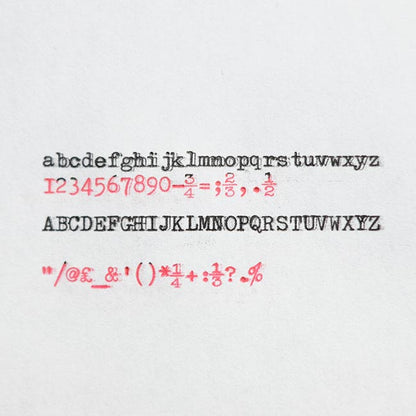 abcdefghijklmnopqrstuvwxyz
1234567890-¾=;⅔,.½
ABCDEFGHIJKLMNOPQRSTUVWXYZ
"/@£_&'()*¼+:⅓?.%